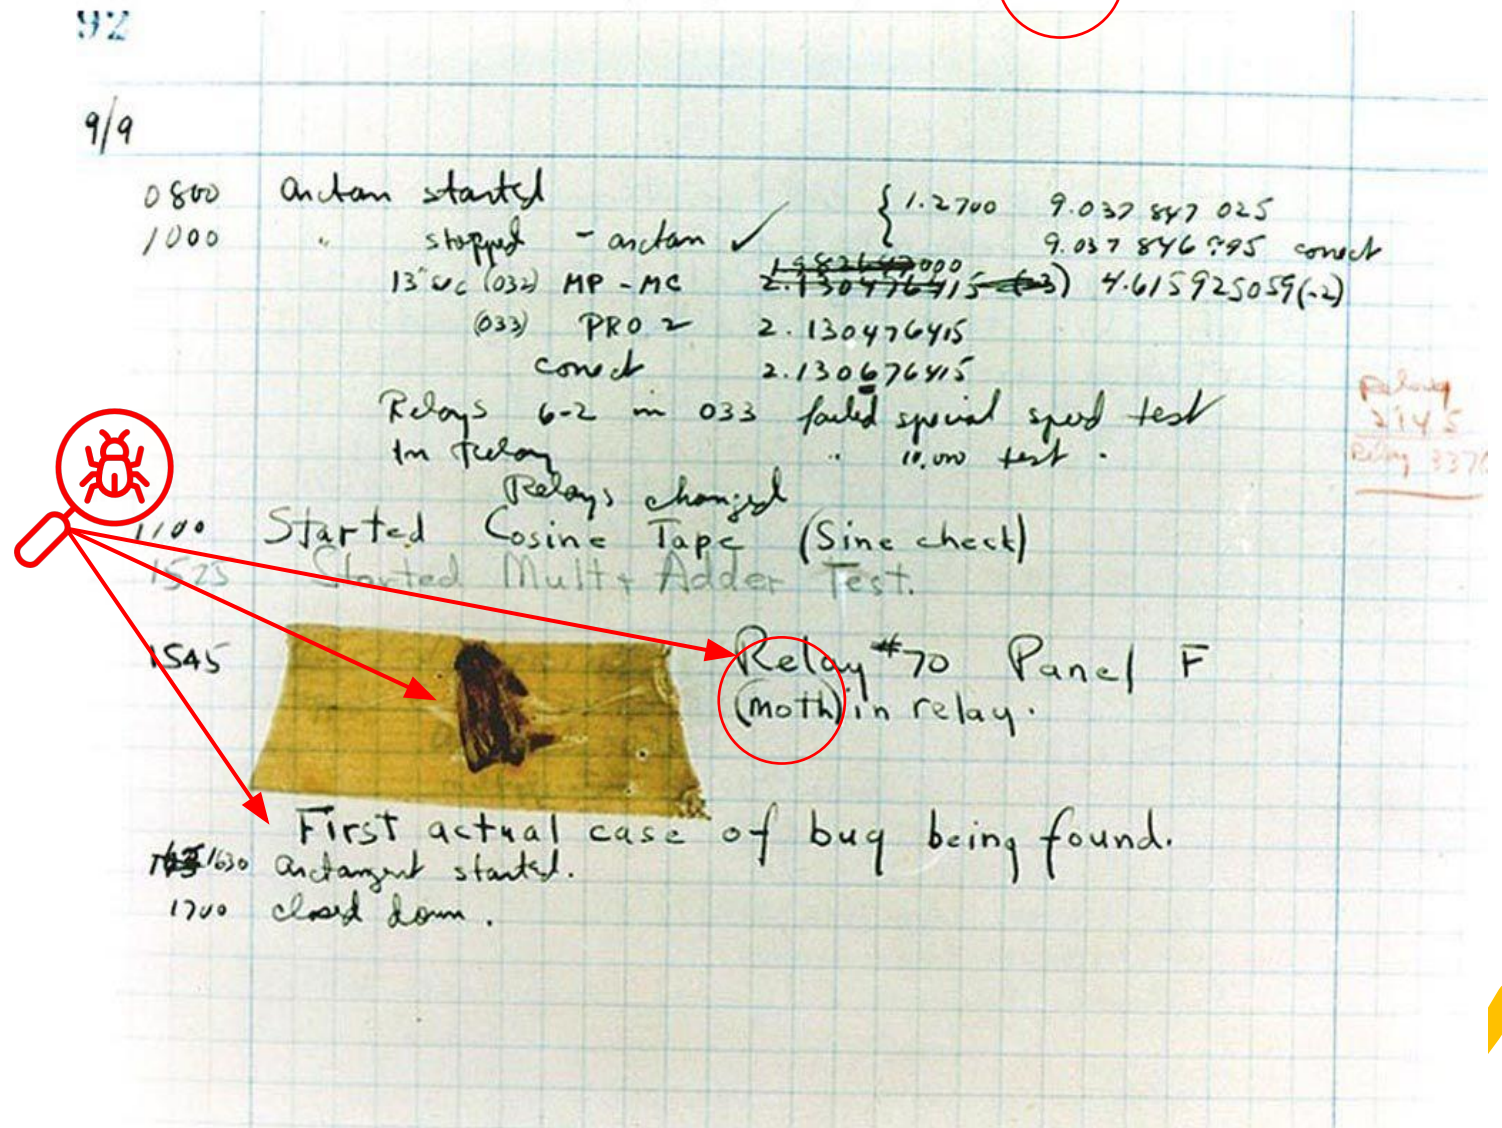 92
9/9
0800 arctan started { 1.2700 9.037 847 025
1000 " stopped - arctan ✓ 9.037 846 995 correct
13"uc (032) MP - MC 2.130476415 (-3) 4.615925059(-2)
(033) PRO 2 2.130476415
correct 2.130676415
Relays 6-2 in 033 failed special speed test
In Relay " 10.000 test.
Relays changed
Relay
2145
Relay 3370
1100 Started Cosine Tape (Sine check)
1525 Started Mult+ Adder Test.
1545 Relay #70 Panel F
(moth) in relay.
First actual case of bug being found.
1630 arctangent started.
1700 closed down.